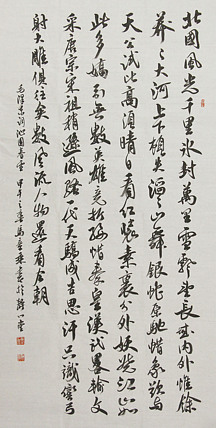 北國風光千里冰封萬里雪飄望長城内外惟餘
莽〻大河上下頓失滔〻山舞銀蛇原馳蠟象欲與
天公試比高須晴日看紅裝素裹分外妖嬈江山如
此多嬌引無數英雄競折腰惜秦皇漢武略輸文
采唐宗宋祖稍遜風騷一代天驕成吉思汗只識彎弓
射大雕俱往矣數風流人物還看今朝
毛澤東詞沁園春雪 甲午之年馬